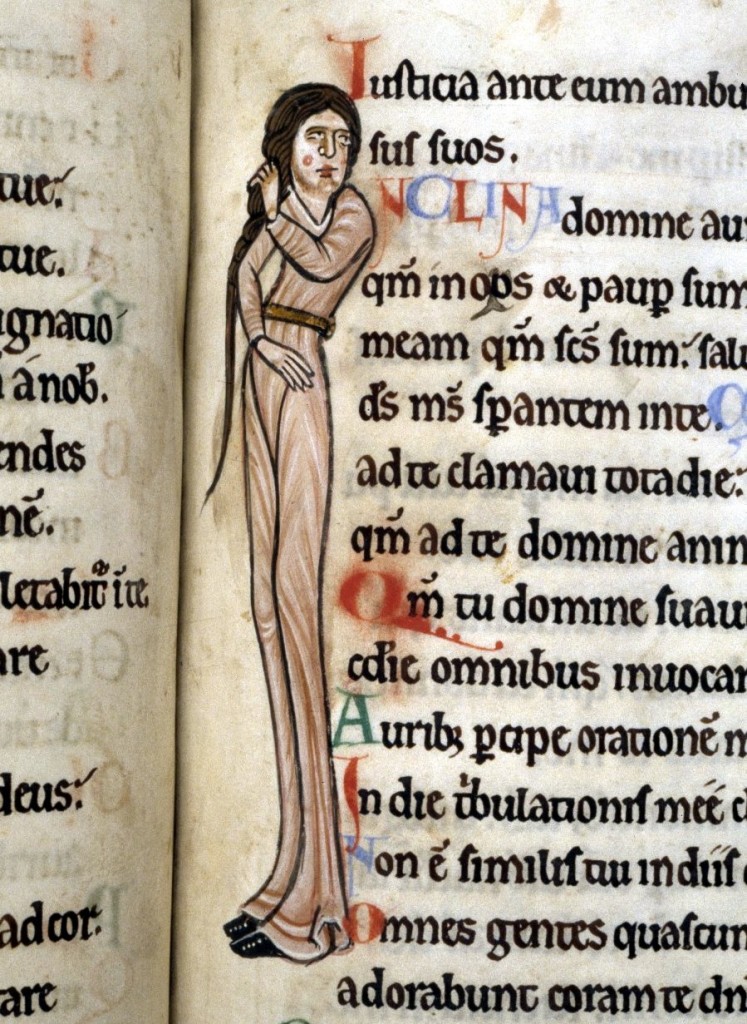 tue:
tue.
ignatio
á nob.
endes
nē.
letabit̄ ī te
are
deus:
ad cor.
tare
Iusticia ante eum ambu
sus suos.
NCLINA domine au
qm̄ inops & paup̱ sum
meam qm̄ scs̄ sum: salu
ds̄ ms̄ sp̱antem in te. Q
ad te clamaui tota die:
qm̄ ad te domine anim
Qm̄ tu domine suaui
cdie omnibus inuocan
Aurib; p̱cipe orationē m
In die t̾bulationis meę c
Non ē similis tui in diis
Omnes gentes quascum
adorabunt coram te dn